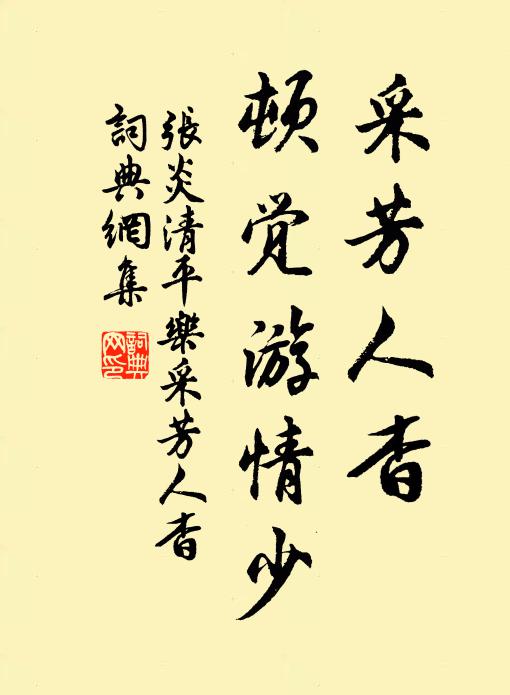 采芳人杳
顿觉游情少
張炎清平樂采芳人杳
詞典網集
詞典網印